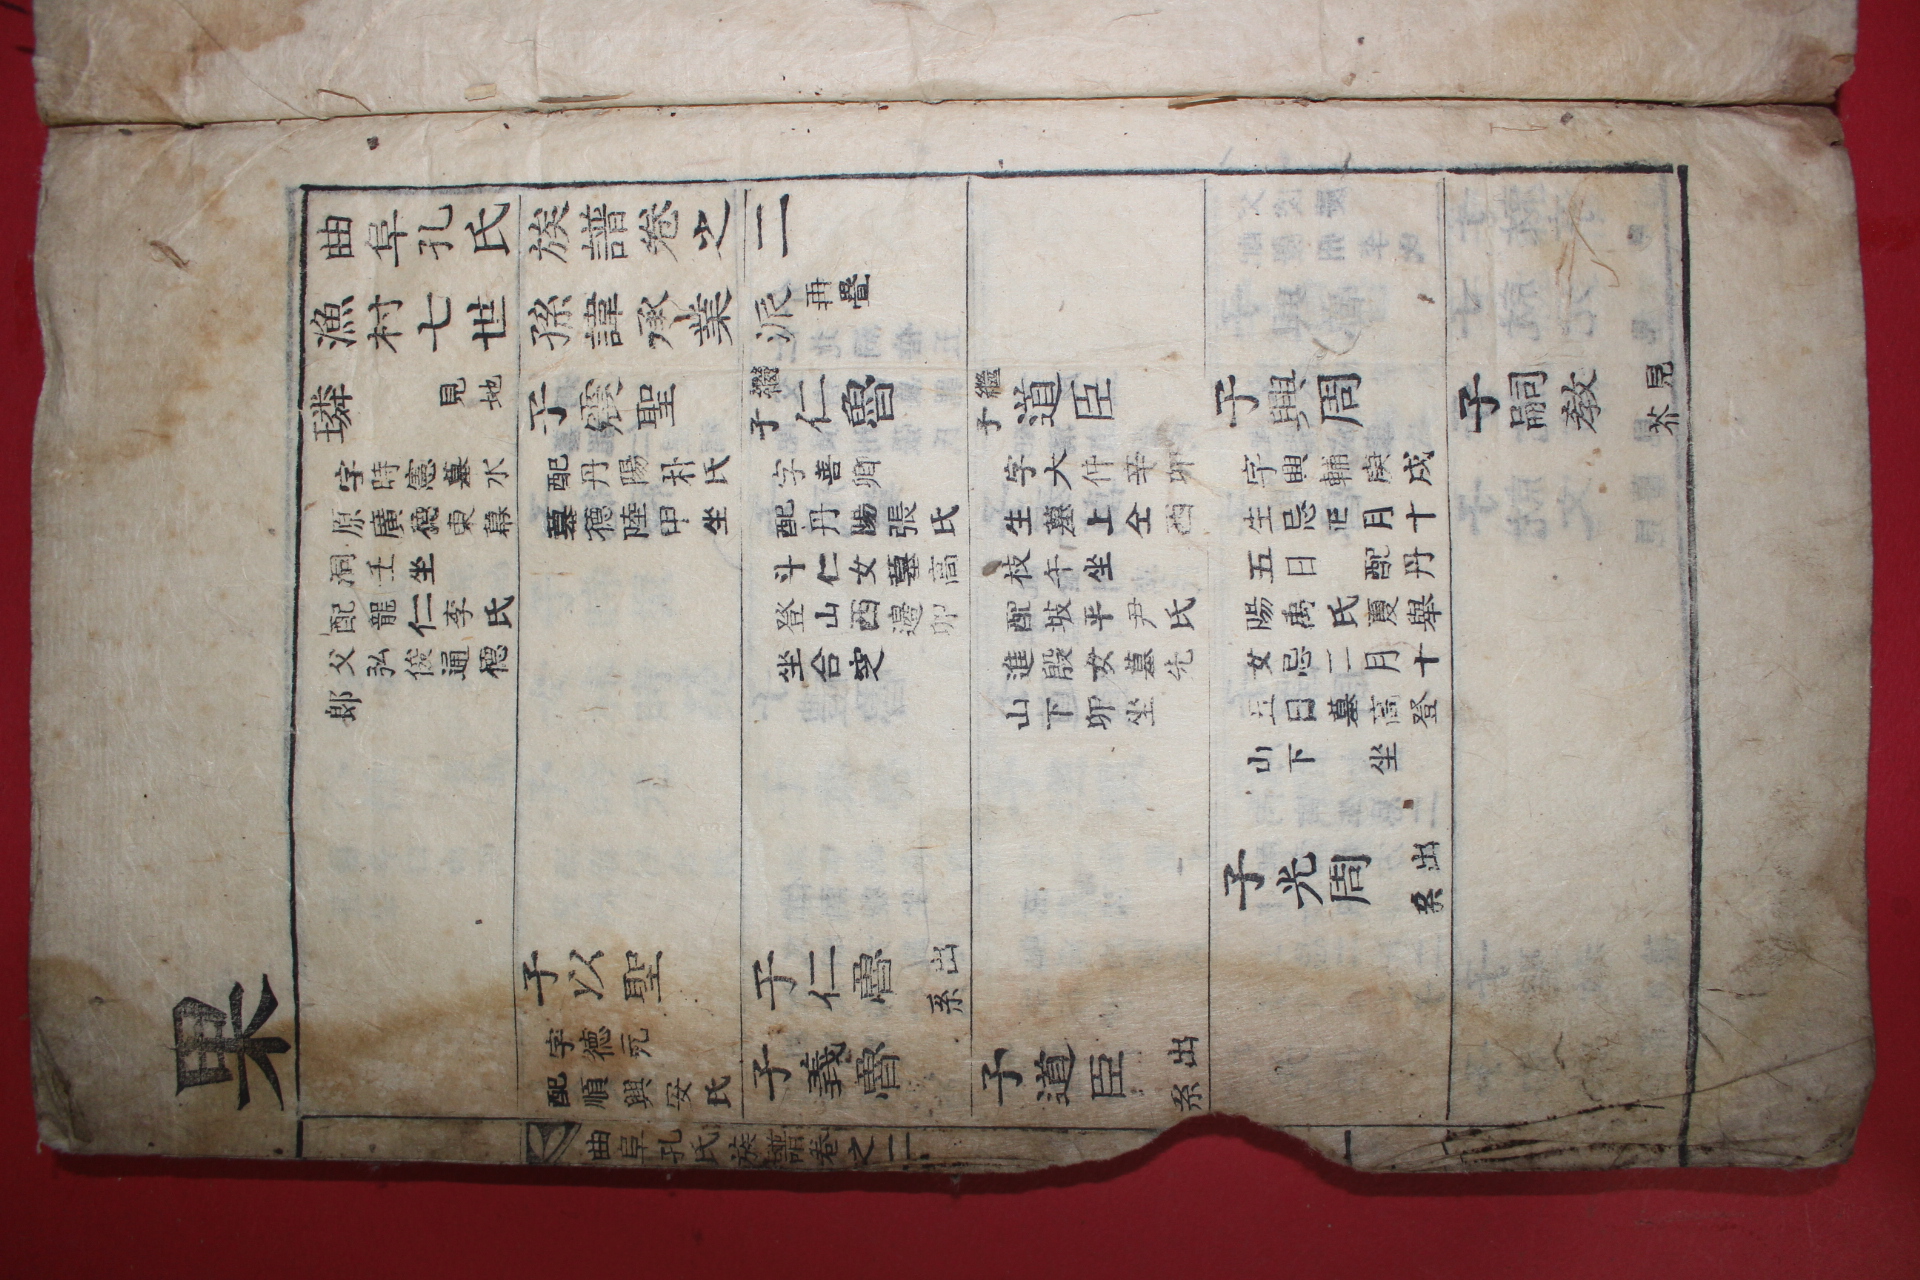 曲阜孔氏族譜卷之二
漁村七世孫諱承業派 再疊
璘 見地
字時憲墓水
原廣德東幕
洞壬坐
配龍仁李氏
父弘俊通德
郎
子霙聖
配丹陽朴氏
墓德陸甲坐
子以聖
字德元
配順興安氏
繼子仁魯
字善卿
配丹陽張氏
斗仁女墓高
登山西邊卯
坐合窆
子仁魯 出系
子義魯
繼子道臣
字大仲辛卯
生墓上仝酉
枝午坐
配坡平尹氏
進殷女墓先
山下卯坐
子道臣 出系
子興周
字興輔庚戌
生忌正月十
五日 配丹
陽禹氏夏舉
女忌二月十
五日墓高登
山下 坐
子光周 出系
子嗣教 見芥
果
曲阜孔氏族譜卷之二
一